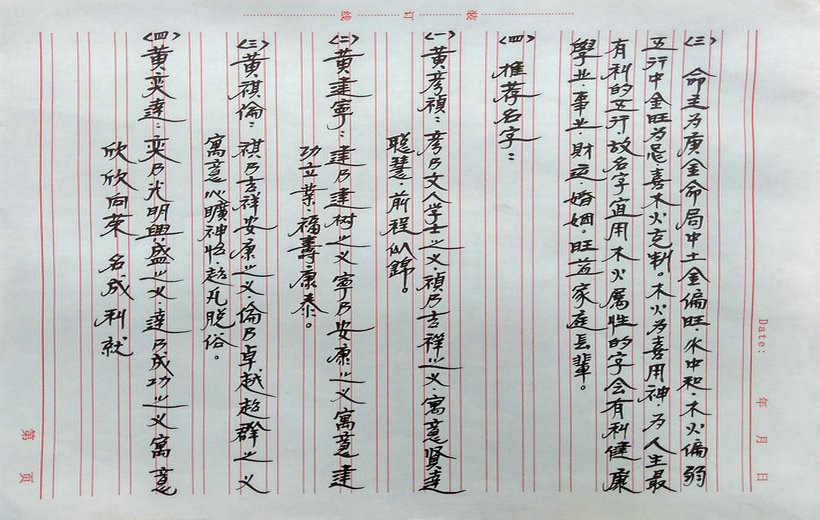 装 订 线
Date: 年 月 日
〈三〉命主为庚金命局中土金偏旺·水中和·木火偏弱
五行中金旺为忌喜木火克制。木火为喜用神·为人生最
有利的五行·故名字宜用木火属性的字会有利健康
學业·事业·财运·婚姻。旺益家庭長輩。
〈四〉推荐名字：
〈一〉黄彦禎：彦乃文人学士之义·禎乃吉祥之义·寓意贤達
聪慧·前程似錦。
〈二〉黄建寧：建乃建树之义寧乃安康之义寓意建
功立業·福壽康泰。
〈三〉黄祺倫：祺乃吉祥安康之义·倫乃卓越超群之义
寓意心曠神怡·超凡脱俗。
〈四〉黄奕達：奕乃光明興盛之义·達乃成功之义寓意
欣欣向荣 名成利就
第 页